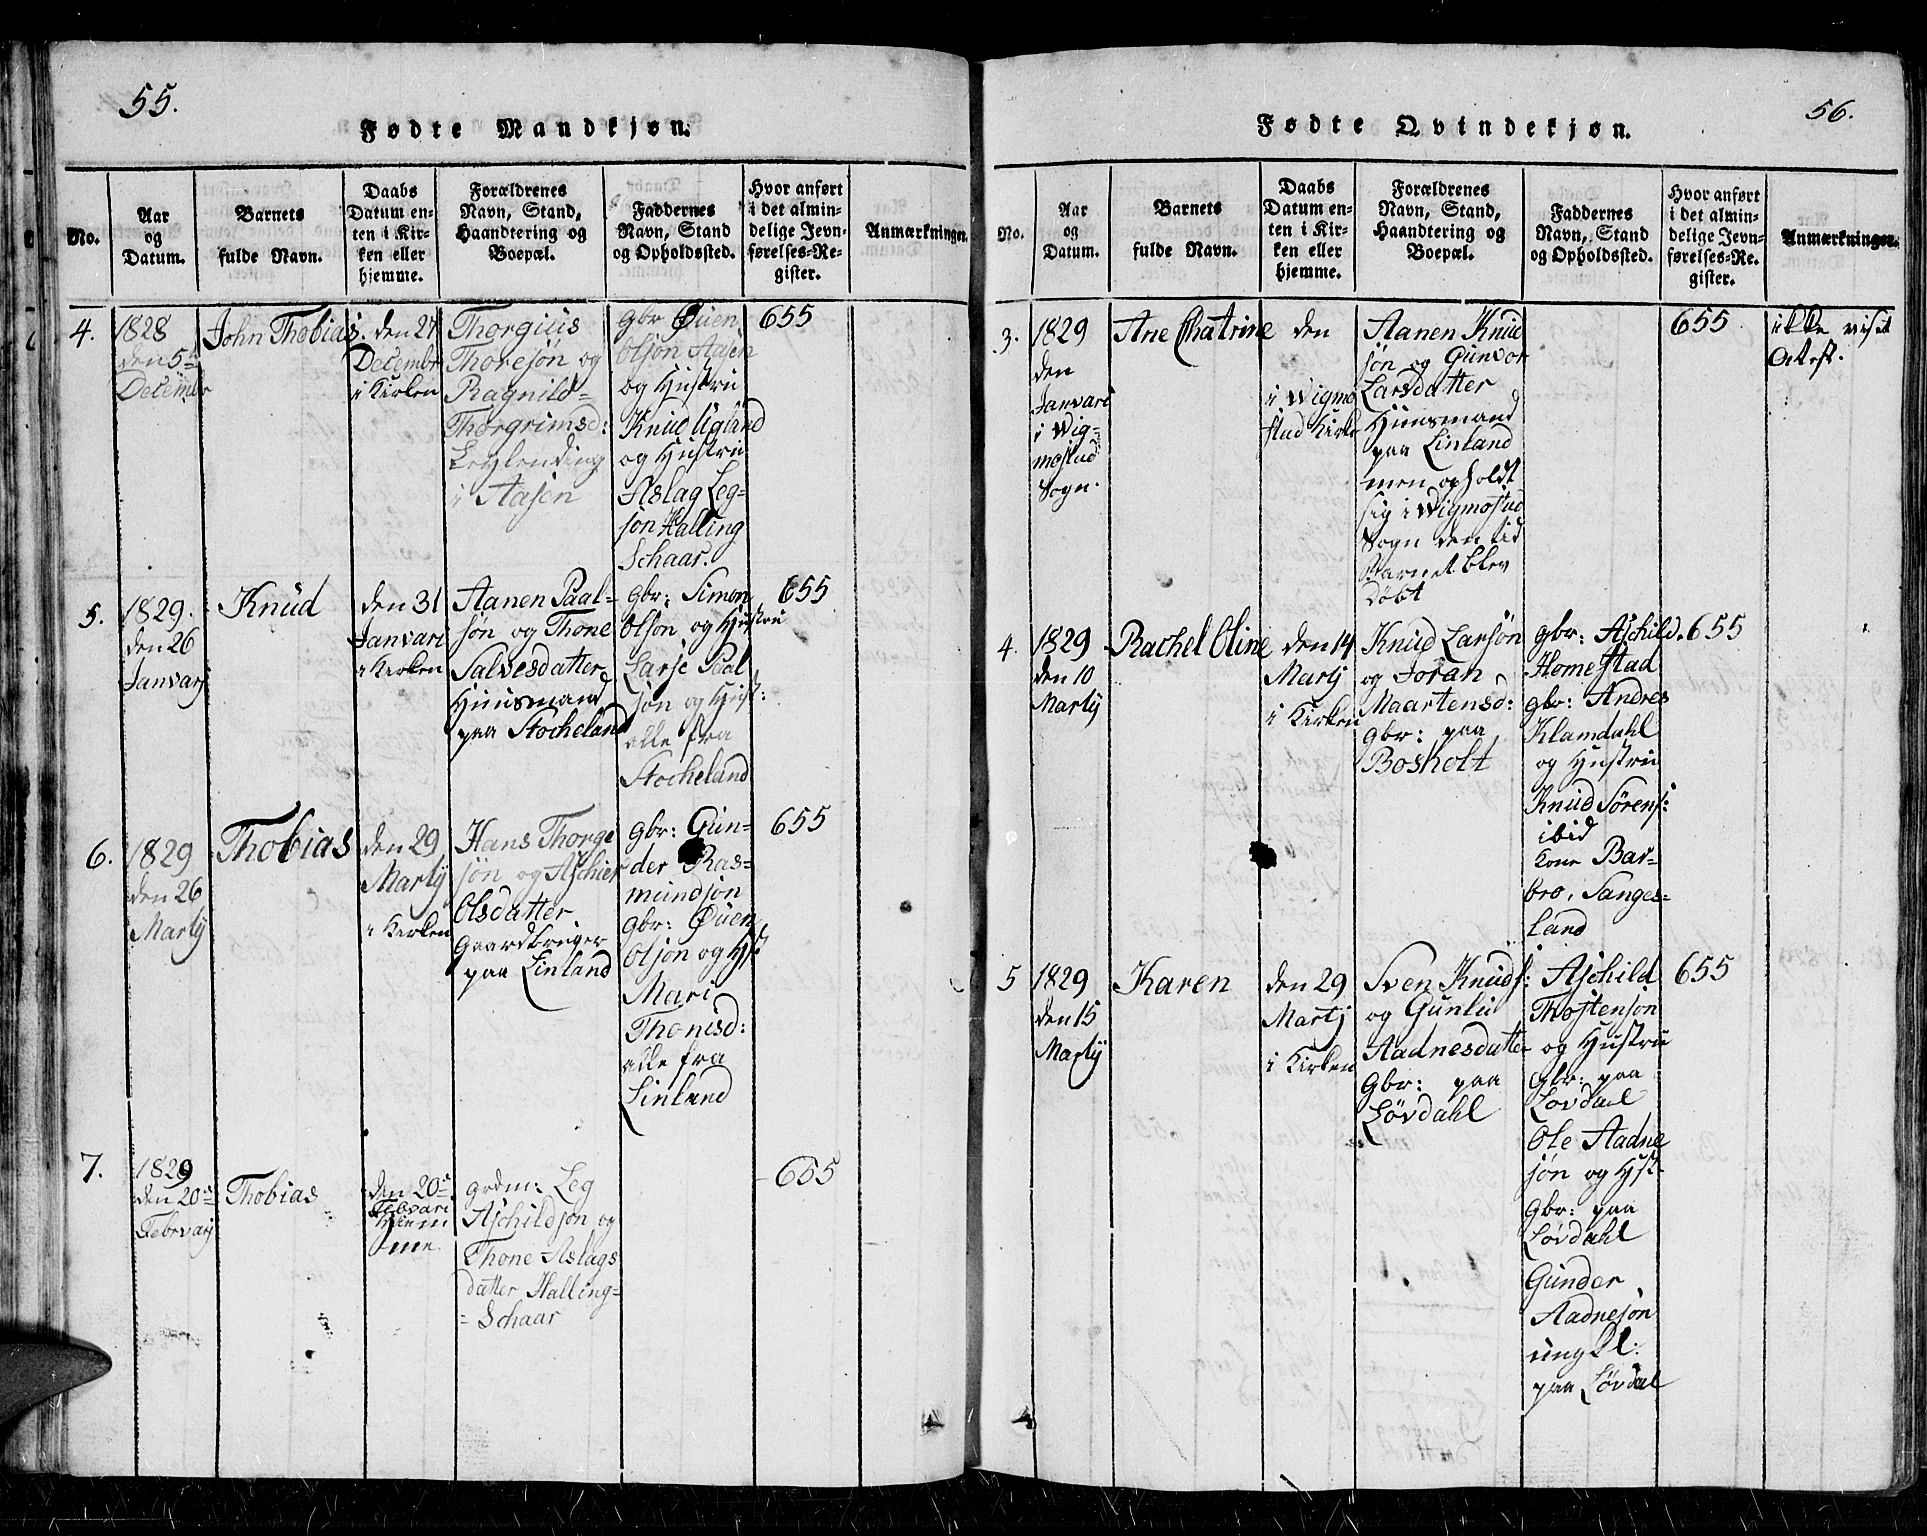 55.
Fødte Mandkjøn.
No.
Aar
og
Datum.
Barnets
fulde Navn.
Daabs
Datum en-
ten i Kir-
ken eller
hjemme.
Forældrenes
Navn, Stand,
Haandtering og
Boepæl.
Faddernes
Navn, Stand
og Opholdssted.
Hvor anført
i det almin-
delige Jevn-
førelses-Re-
gister.
Anmærkninger.
4.
1828
den 5te
December
John Thobias
den 27
Decembr
i Kirken
Thorgius
Thoresøn og
Ragnild
Thorgrimsd:
Leylending
i Aasen
gbr Øuen
Olsøn Aasen
og Hustrü
Knud Ugland
og Hustrü
Aslag Leg-
søn Halling
Schaar.
655
5.
1829.
den 26
Januarj
Knüd
den 31
Januari
i Kirken
Aanen Paal-
søn og Thone
Salvesdatter
Huusmand
paa Stocheland
gbr: Simon
Olsøn og Hustru
Larse Paal
søn og Hust:
alle fra
Stocheland
655
6.
1829
den 26
Martij
Thobias
den 29
Martij
i Kirken
Hans Thorge
søn og Aschier
Olsdatter
Gaardbruger
paa Linland
gbr: Gün-
der Ras-
mundsøn
gbr: Øuen
Olsøn og Hst
Mari
Thonisd:
alle fra
Linland
655
7.
1829
den 20de
Febrvarij
Thobias
den 20de
Febvari
Hiem
me
grdm: Leg
Aschildsøn og
Thone Aslags
datter Halling-
=Schaar
655
56.
Fødte Qvindekjøn.
No.
Aar
og
Datum.
Barnets
fulde Navn.
Daabs
Datum en-
ten i Kir-
ken eller
hjemme.
Forældrenes
Navn, Stand,
Haandtering og
Boepæl.
Faddernes
Navn, Stand
og Opholdssted.
Hvor anført
i det almin-
delige Jevn-
førelses-Re-
gister.
Anmærkninger.
3.
1829
den
Januari
i Wig-
mostad
Sogn.
Ane Chatrine
den
i Wigmo
stad Kirke
Aanen Knud
søn og Gunvor
Larsdatter
Huusmand
paa Linland
men opholdt
sig i Wigmostad
Sogn den tid
Barnet blev
døbt
655
ikke viist
Attest.
4.
1829
den 10
Martij
Rachel Oline
den 14
Martj
i Kirken
Knud Larsøn
og Joran
Maartensd:
gbr: paa
Bosholt
gbr: Aschild
Homestad
gbr: Andres
Klamdahl
og Hustrü
Knud Sørens:
ibid
Kone Bar-
bro, Sanges-
land
655
5
1829
den 15
Martij
Karen
den 29
Martj
i Kirken
Sven Knuds:
og Gunlu
Aadnesdatter
Gbr: paa
Løvdahl
Aschild
Thostensøn
og Hustrü
Gbr: paa
Lovdael
Ole Aadne
søn og Hst-
Gbr: paa
Løvdahl
Günder
Aadnesøn
ungkl:
paa Løvdal
655